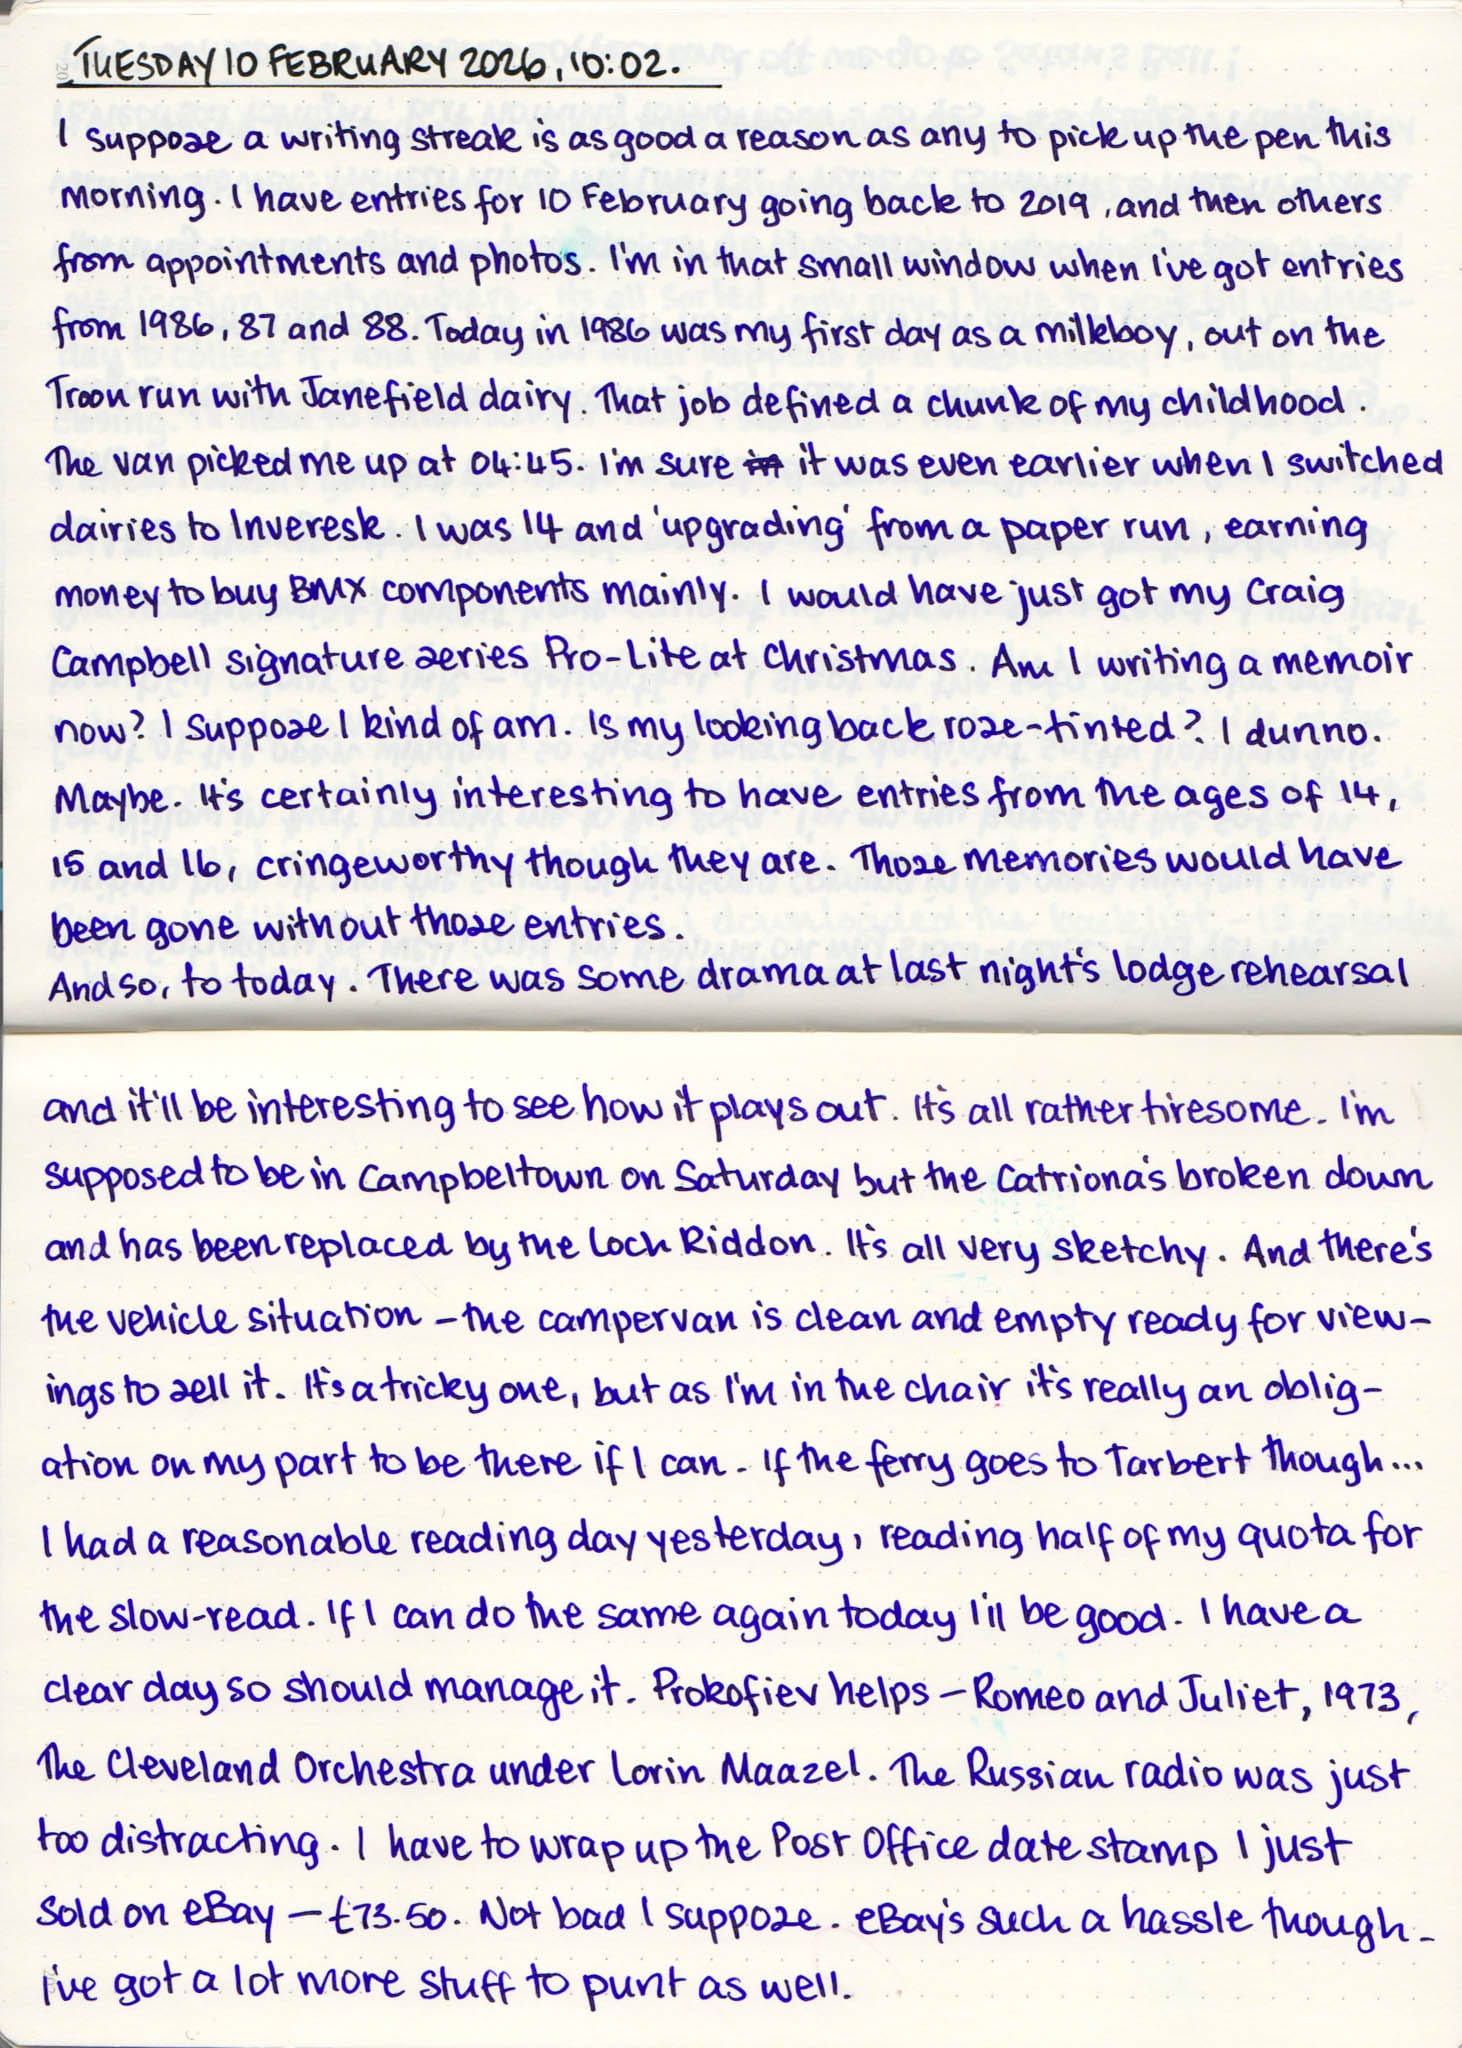 TUESDAY 10 FEBRUARY 2026, 10:02.
I suppose a writing streak is as good a reason as any to pick up the pen this
morning. I have entries for 10 February going back to 2019, and then others
from appointments and photos. I'm in that small window when I've got entries
from 1986, 87 and 88. Today in 1986 was my first day as a milkboy, out on the
Troon run with Janefield dairy. That job defined a chunk of my childhood.
The van picked me up at 04:45. I'm sure in it was even earlier when I switched
dairies to Inveresk. I was 14 and 'upgrading' from a paper run, earning
money to buy BMX components mainly. I would have just got my Craig
Campbell signature series Pro-Lite at Christmas. Am I writing a memoir
now? I suppose I kind of am. Is my looking back rose-tinted? I dunno.
Maybe. It's certainly interesting to have entries from the ages of 14,
15 and 16, cringeworthy though they are. Those memories would have
been gone without those entries.
And so, to today. There was some drama at last night's lodge rehearsal
and it'll be interesting to see how it plays out. It's all rather tiresome. I'm
supposed to be in Campbeltown on Saturday but the Catriona's broken down
and has been replaced by the Loch Riddon. It's all very sketchy. And there's
the vehicle situation – the campervan is clean and empty ready for view-
ings to sell it. It's a tricky one, but as I'm in the chair it's really an oblig-
ation on my part to be there if I can. If the ferry goes to Tarbert though...
I had a reasonable reading day yesterday, reading half of my quota for
the slow-read. If I can do the same again today I'll be good. I have a
clear day so should manage it. Prokofiev helps – Romeo and Juliet, 1973,
The Cleveland Orchestra under Lorin Maazel. The Russian radio was just
too distracting. I have to wrap up the Post Office date stamp I just
sold on eBay – £73.50. Not bad I suppose. eBay's such a hassle though.
I've got a lot more stuff to punt as well.